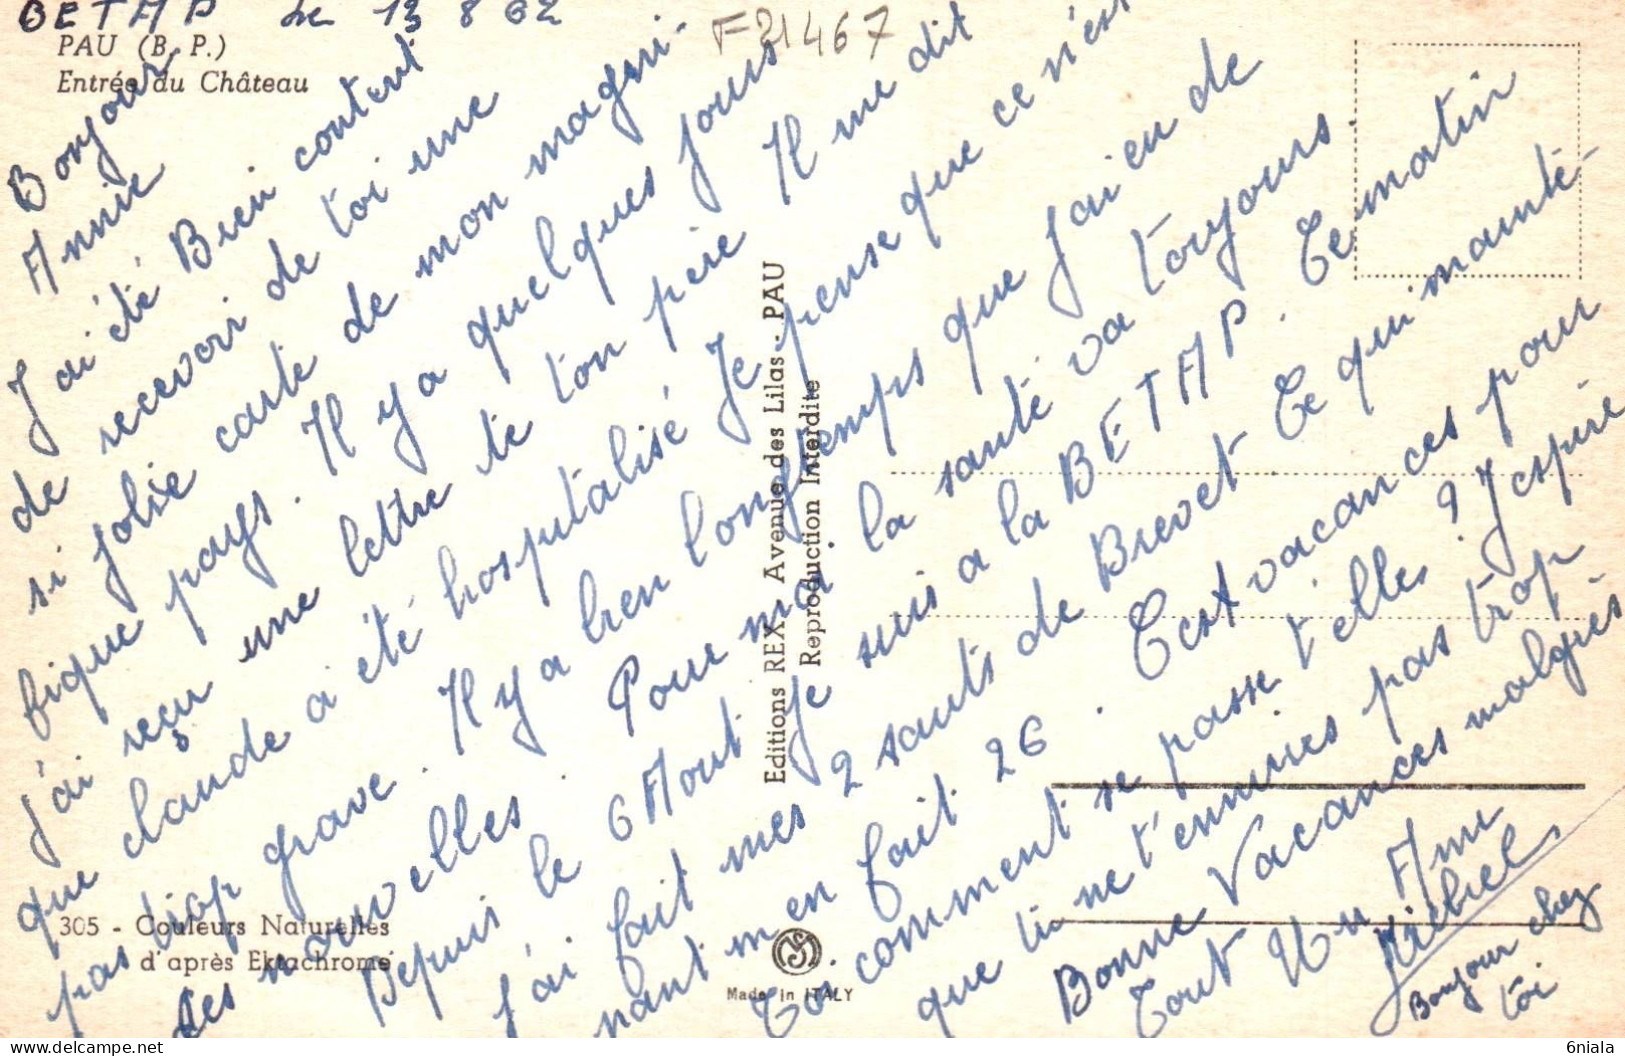 BETAP le 13 8 62
F21467
PAU (B. P.)
Entrée du Château
Bonjour
Annie
J'ai été Bien content
de recevoir de toi une
si jolie carte de mon magni-
fique pays. Il y a quelques jours
j'ai reçu une lettre de ton père Il me dit
que claude a été hospitalisé Je pense que ce n'est
pas trop grave. Il y a bien longtemps que j'ai eu de
des nouvelles. Pour moi la santé va toujours.
Depuis le 6 Aout Je suis a la BETAP. Ce matin
J'ai fait mes 2 sauts de Brevet Ce qui mainte-
nant m'en fait 26. Cest vacances pour
toi comment se passe t'elles ? J'espère
que tu ne t'ennuies pas trop
Bonne Vacances malgrès
tout Un Ami
Michel
Bonjour chez
toi
Editions REX, Avenue des Lilas - PAU
Reproduction Interdite
305 - Couleurs Naturelles
d'après Ektachrome
Made in ITALY
6niala